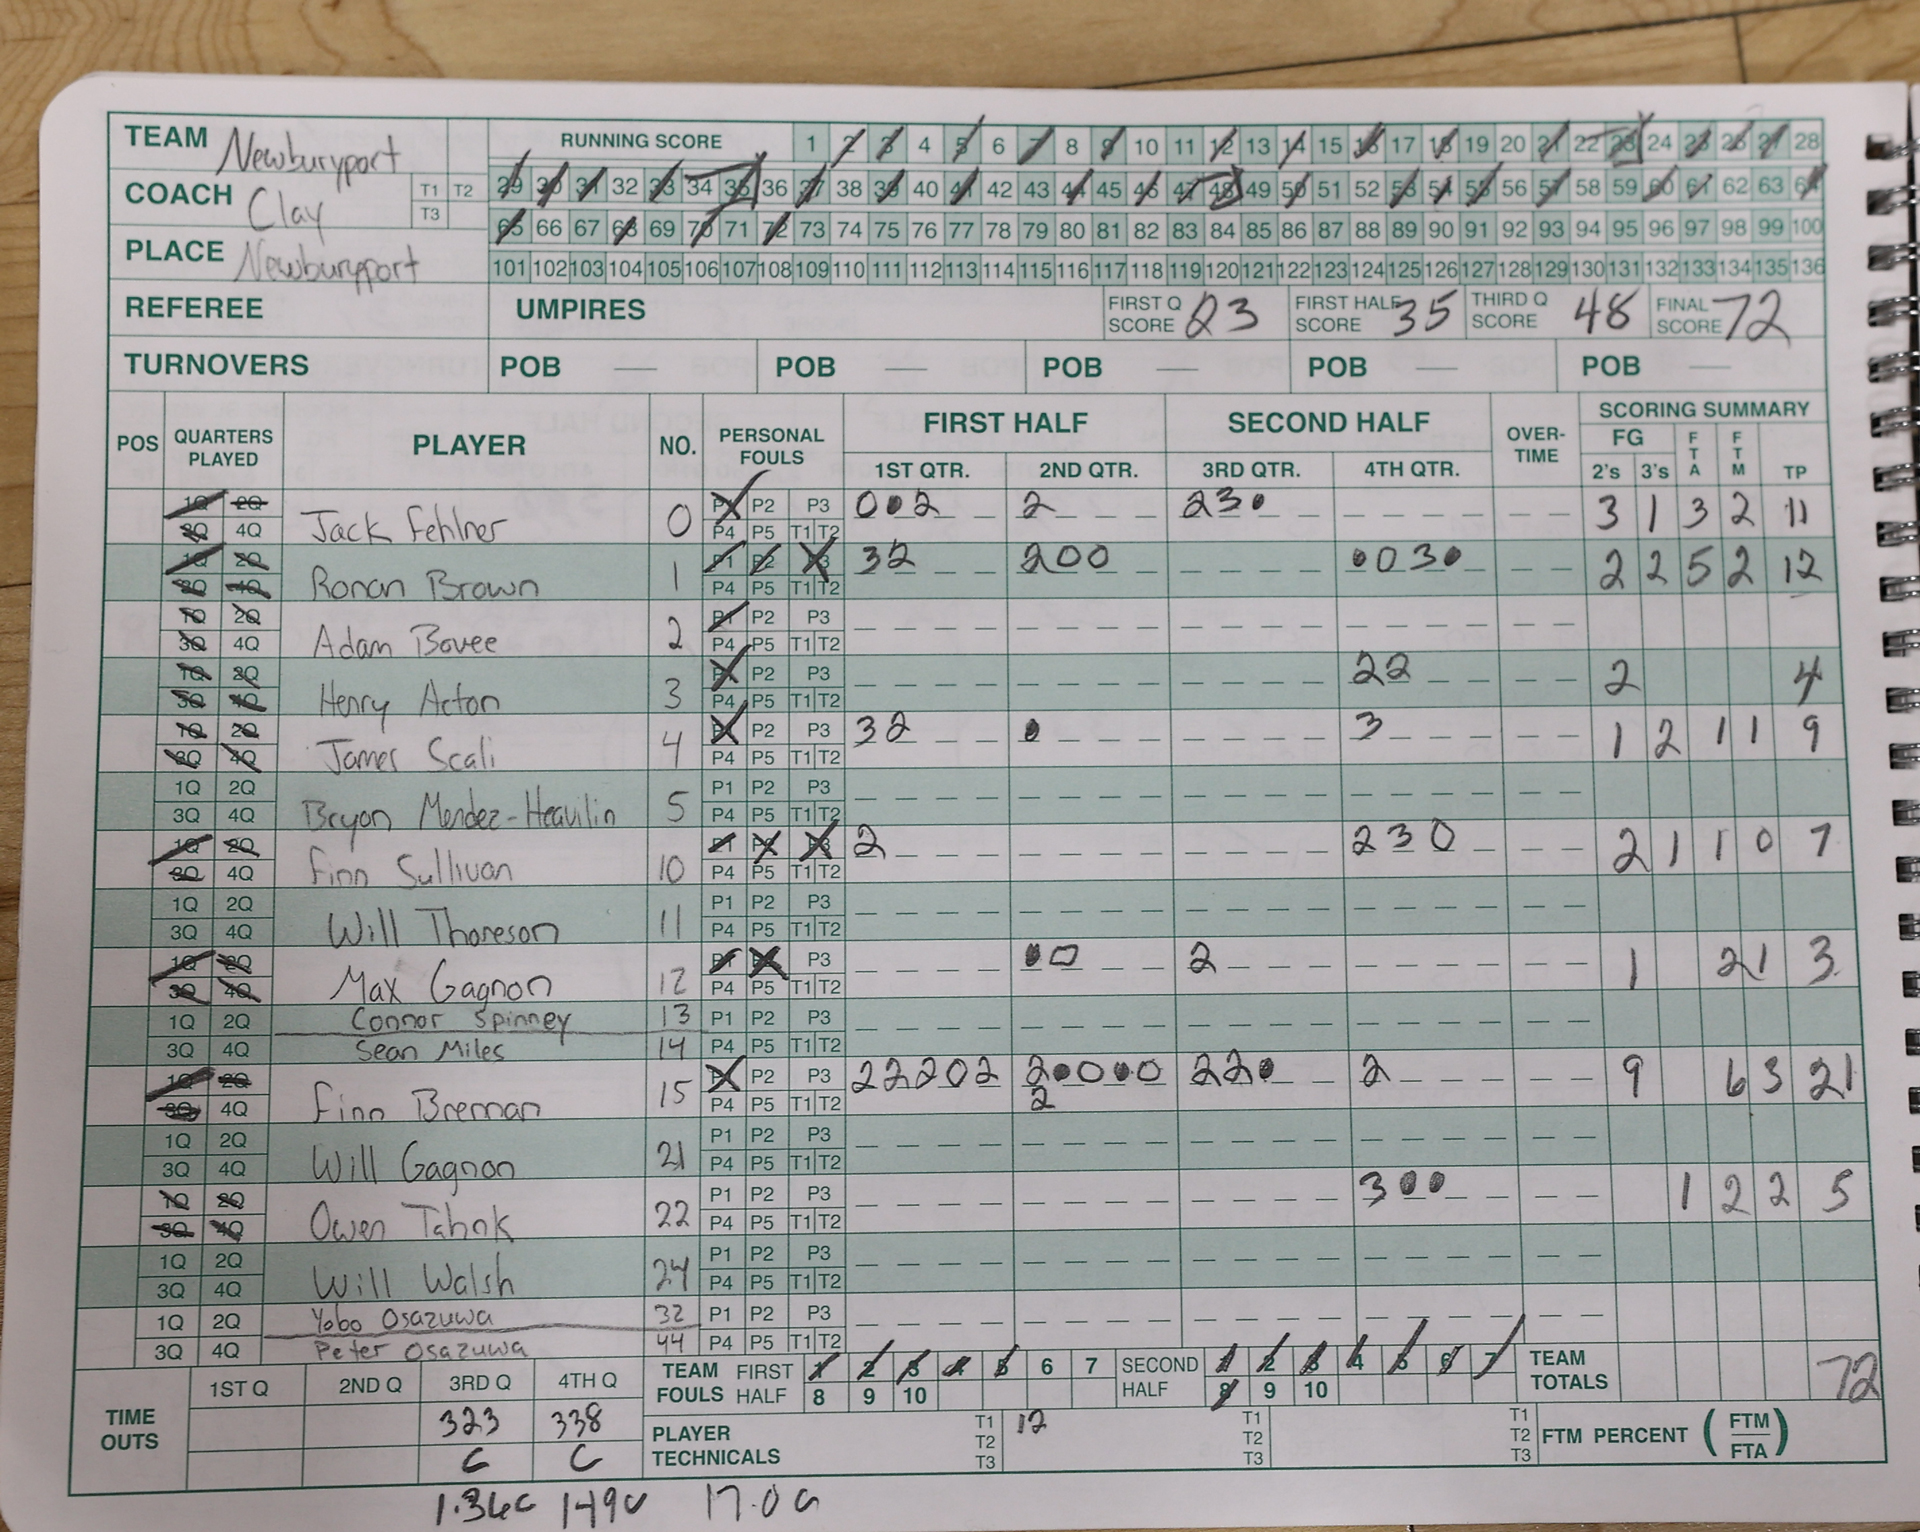 TEAM Newburyport
RUNNING SCORE 1 2 3 4 5 6 7 8 9 10 11 12 13 14 15 16 17 18 19 20 21 22 23 24 25 26 27 28
COACH Clay T1 T2 T3
29 30 31 32 33 34 35 36 37 38 39 40 41 42 43 44 45 46 47 48 49 50 51 52 53 54 55 56 57 58 59 60 61 62 63 64
65 66 67 68 69 70 71 72 73 74 75 76 77 78 79 80 81 82 83 84 85 86 87 88 89 90 91 92 93 94 95 96 97 98 99 100
PLACE Newburyport
101 102 103 104 105 106 107 108 109 110 111 112 113 114 115 116 117 118 119 120 121 122 123 124 125 126 127 128 129 130 131 132 133 134 135 136
REFEREE UMPIRES FIRST Q SCORE 23 FIRST HALF SCORE 35 THIRD Q SCORE 48 FINAL SCORE 72
TURNOVERS POB — POB — POB — POB — POB —
POS QUARTERS PLAYED PLAYER NO. PERSONAL FOULS FIRST HALF SECOND HALF OVER-TIME SCORING SUMMARY
1ST QTR. 2ND QTR. 3RD QTR. 4TH QTR. FG 2's 3's FTA FTM TP
1Q 2Q 3Q 4Q Jack Fehlner 0 P1 P2 P3 P4 P5 T1 T2 0•2 2 23• 3 1 3 2 11
1Q 2Q 3Q 4Q Ronan Brown 1 P1 P2 P3 P4 P5 T1 T2 32 200 •03• 2 2 5 2 12
1Q 2Q 3Q 4Q Adam Bovee 2 P1 P2 P3 P4 P5 T1 T2
1Q 2Q 3Q 4Q Henry Acton 3 P1 P2 P3 P4 P5 T1 T2 22 2 4
1Q 2Q 3Q 4Q James Scali 4 P1 P2 P3 P4 P5 T1 T2 32 • 3 1 2 1 1 9
1Q 2Q 3Q 4Q Bryon Mendez-Heavilin 5 P1 P2 P3 P4 P5 T1 T2
1Q 2Q 3Q 4Q Finn Sullivan 10 P1 P2 P3 P4 P5 T1 T2 2 230 2 1 1 0 7
1Q 2Q 3Q 4Q Will Thoreson 11 P1 P2 P3 P4 P5 T1 T2
1Q 2Q 3Q 4Q Max Gagnon 12 P1 P2 P3 P4 P5 T1 T2 •0 2 1 2 1 3
1Q 2Q Connor Spinney 13 P1 P2 P3
3Q 4Q Sean Miles 14 P4 P5 T1 T2
1Q 2Q 3Q 4Q Finn Brennan 15 P1 P2 P3 P4 P5 T1 T2 22202 2•0••02 22• 2 9 6 3 21
1Q 2Q 3Q 4Q Will Gagnon 21 P1 P2 P3 P4 P5 T1 T2
1Q 2Q 3Q 4Q Owen Tahnk 22 P1 P2 P3 P4 P5 T1 T2 3•• 1 2 2 5
1Q 2Q 3Q 4Q Will Walsh 24 P1 P2 P3 P4 P5 T1 T2
1Q 2Q Yobo Osazuwa 32 P1 P2 P3
3Q 4Q Peter Osazuwa 44 P4 P5 T1 T2
TIME OUTS 1ST Q 2ND Q 3RD Q 4TH Q
323 338
C C
TEAM FOULS FIRST HALF 1 2 3 4 5 6 7 8 9 10 SECOND HALF 1 2 3 4 5 6 7 8 9 10 TEAM TOTALS 72
PLAYER TECHNICALS T1 T2 T3 12 T1 T2 T3 T1 T2 T3 FTM PERCENT (FTM/FTA)